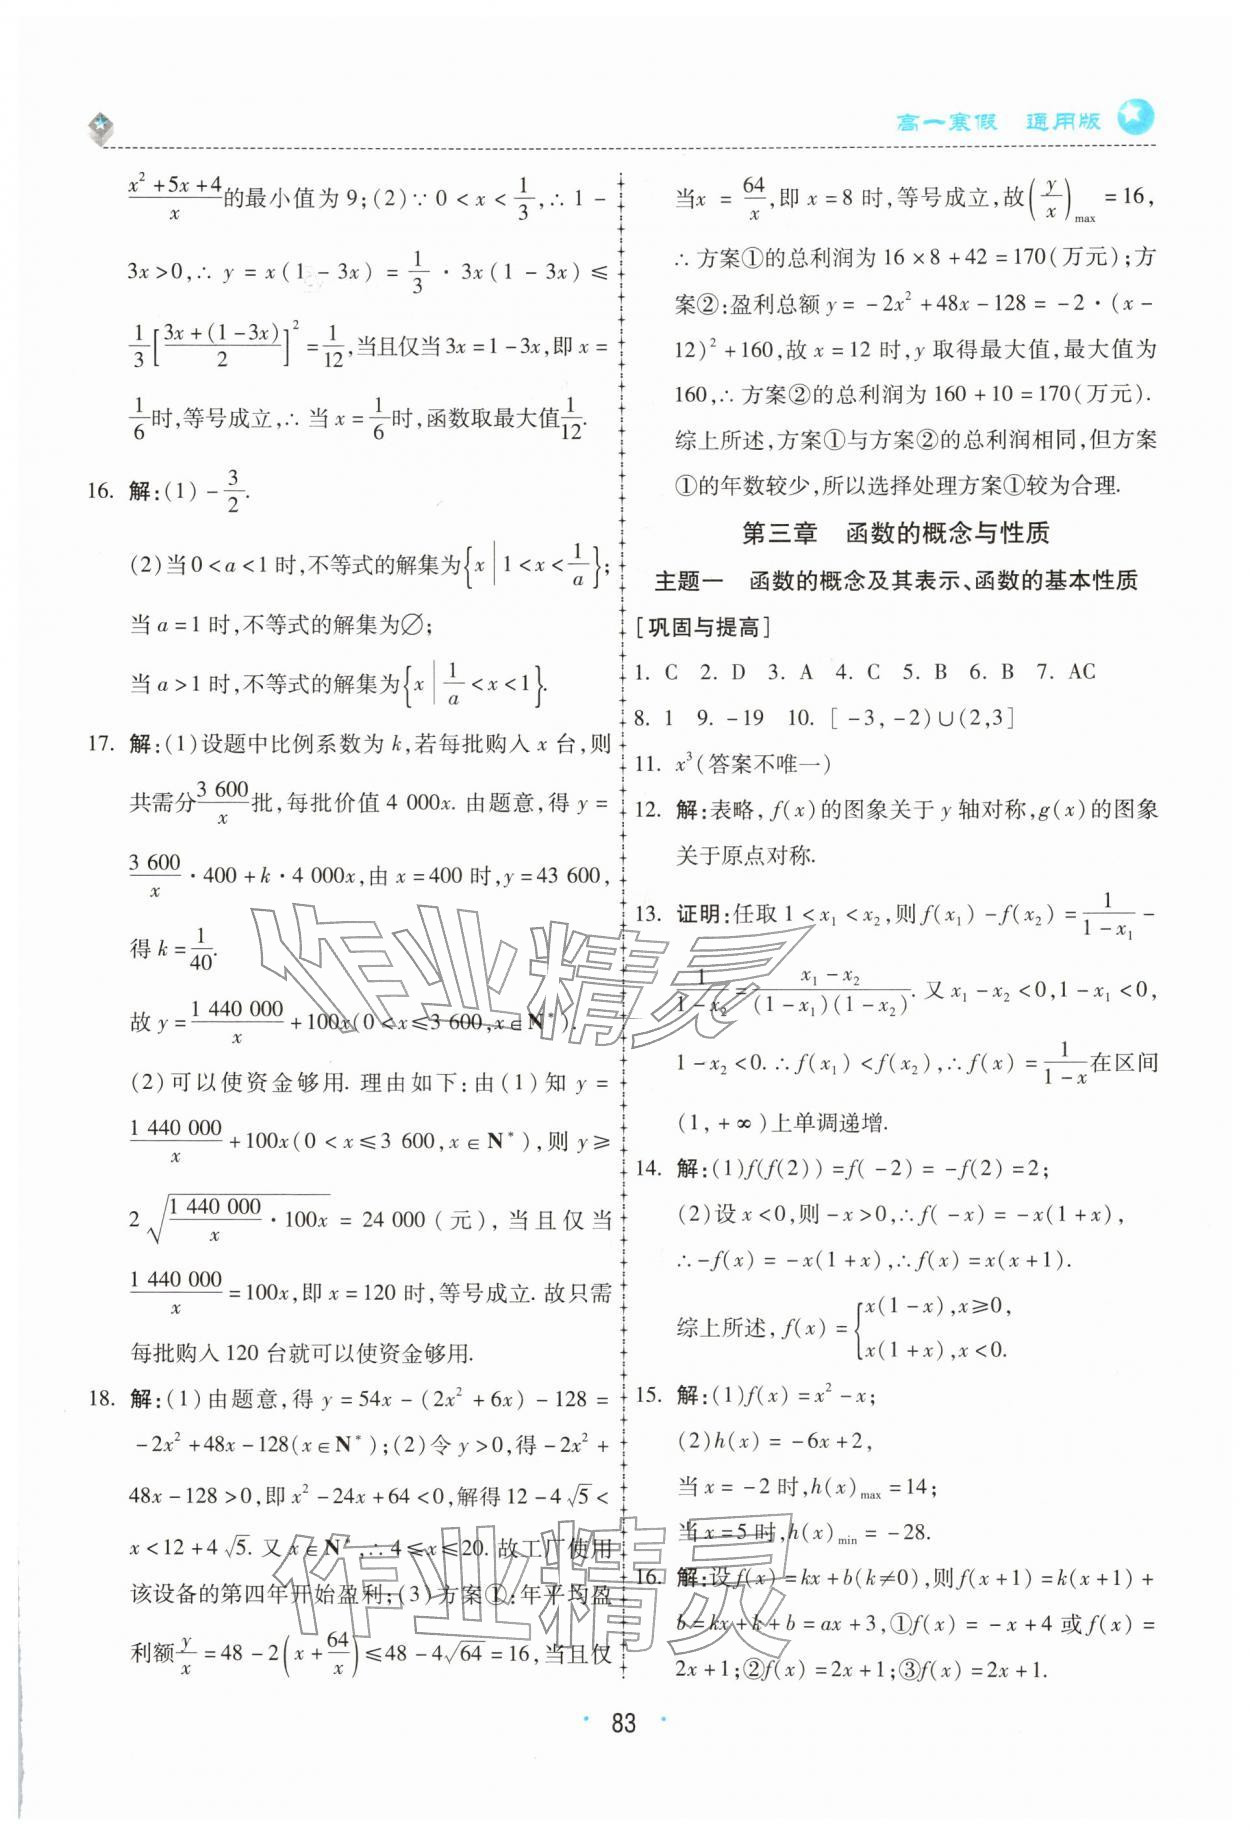 高一寒假 通用版
$\frac{x^2+5x+4}{x}$的最小值为9;(2)∵0<x<$\frac{1}{3}$,∴1-
3x>0,∴y=x(1-3x)=$\frac{1}{3}$·3x(1-3x)≤
$\frac{1}{3}\left[\frac{3x+(1-3x)}{2}\right]^2$=$\frac{1}{12}$,当且仅当3x=1-3x,即x=
$\frac{1}{6}$时,等号成立,∴当x=$\frac{1}{6}$时,函数取最大值$\frac{1}{12}$.
16. 解:(1)-$\frac{3}{2}$.
(2)当0<a<1时,不等式的解集为$\left\{x\middle|1<x<\frac{1}{a}\right\}$;
当a=1时,不等式的解集为∅;
当a>1时,不等式的解集为$\left\{x\middle|\frac{1}{a}<x<1\right\}$.
17. 解:(1)设题中比例系数为k,若每批购入x台,则
共需分$\frac{3\ 600}{x}$批,每批价值4 000x. 由题意,得y=
$\frac{3\ 600}{x}$·400+k·4 000x,由x=400时,y=43 600,
得k=$\frac{1}{40}$.
故y=$\frac{1\ 440\ 000}{x}$+100x(0<x≤3 600,x∈N*).
(2)可以使资金够用. 理由如下:由(1)知y=
$\frac{1\ 440\ 000}{x}$+100x(0<x≤3 600,x∈N*),则y≥
2$\sqrt{\frac{1\ 440\ 000}{x}·100x}$=24 000(元),当且仅当
$\frac{1\ 440\ 000}{x}$=100x,即x=120时,等号成立. 故只需
每批购入120台就可以使资金够用.
18. 解:(1)由题意,得y=54x-(2x²+6x)-128=
-2x²+48x-128(x∈N*);(2)令y>0,得-2x²+
48x-128>0,即x²-24x+64<0,解得12-4√5<
x<12+4√5. 又x∈N*,∴4≤x≤20. 故工厂使用
该设备的第四年开始盈利;(3)方案①:年平均盈
利额$\frac{y}{x}$=48-2$\left(x+\frac{64}{x}\right)$≤48-4√64=16,当且仅
当x=$\frac{64}{x}$,即x=8时,等号成立,故$\left(\frac{y}{x}\right)_{max}$=16,
∴方案①的总利润为16×8+42=170(万元);方
案②:盈利总额y=-2x²+48x-128=-2·(x-
12)²+160,故x=12时,y取得最大值,最大值为
160,∴方案②的总利润为160+10=170(万元).
综上所述,方案①与方案②的总利润相同,但方案
①的年数较少,所以选择处理方案①较为合理.
第三章 函数的概念与性质
主题一 函数的概念及其表示、函数的基本性质
[巩固与提高]
1. C 2. D 3. A 4. C 5. B 6. B 7. AC
8. 1 9. -19 10. [-3,-2)∪(2,3]
11. x³(答案不唯一)
12. 解:表略,f(x)的图象关于y轴对称,g(x)的图象
关于原点对称.
13. 证明:任取1<x₁<x₂,则f(x₁)-f(x₂)=$\frac{1}{1-x_1}$-
$\frac{1}{1-x_2}$=$\frac{x_1-x_2}{(1-x_1)(1-x_2)}$. 又x₁-x₂<0,1-x₁<0,
1-x₂<0. ∴f(x₁)<f(x₂),∴f(x)=$\frac{1}{1-x}$在区间
(1,+∞)上单调递增.
14. 解:(1)f(f(2))=f(-2)=-f(2)=2;
(2)设x<0,则-x>0,∴f(-x)=-x(1+x),
∴-f(x)=-x(1+x),∴f(x)=x(x+1).
综上所述,f(x)=$\begin{cases}x(1-x),x≥0,\\x(x+1),x<0.\end{cases}$
15. 解:(1)f(x)=x²-x;
(2)h(x)=-6x+2,
当x=-2时,h(x)$_{max}$=14;
当x=5时,h(x)$_{min}$=-28.
16. 解:设f(x)=kx+b(k≠0),则f(x+1)=k(x+1)+
b=kx+k+b=ax+3,①f(x)=-x+4或f(x)=
2x+1;②f(x)=2x+1;③f(x)=2x+1.
作业精灵
作业精灵
83